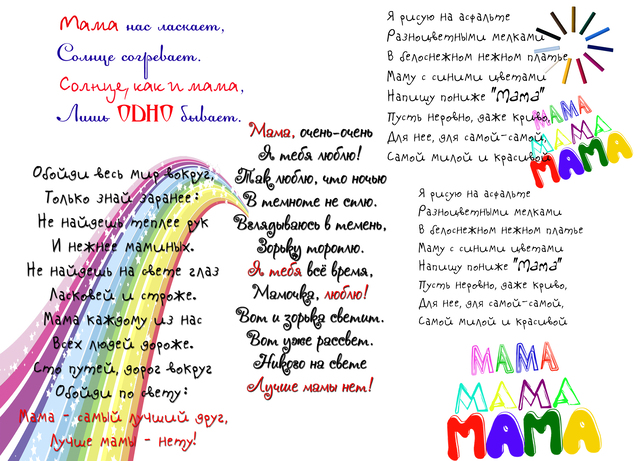 Мама нас ласкает,
Солнце согревает.
Солнце, как и мама,
Лишь ОДНО бывает.
Обойди весь мир вокруг,
Только знай заранее:
Не найдешь теплее рук
И нежнее маминых.
Не найдешь на свете глаз
Ласковей и строже.
Мама каждому из нас
Всех людей дороже.
Сто путей, дорог вокруг
Обойди по свету:
Мама - самый лучший друг,
Лучше мамы - нету!
Мама, очень-очень
Я тебя люблю!
Так люблю, что ночью
В темноте не сплю.
Вглядываюсь в темень,
Зорьку тороплю.
Я тебя всё время,
Мамочка, люблю!
Вот и зорька светит.
Вот уже рассвет.
Никого на свете
Лучше мамы нет!
Я рисую на асфальте
Разноцветными мелками
В белоснежном нежном платье
Маму с синими цветами
Напишу пониже "Мама"
Пусть неровно, даже криво,
Для нее, для самой-самой,
Самой милой и красивой
МАМА
МАМА
МАМА
Я рисую на асфальте
Разноцветными мелками
В белоснежном нежном платье
Маму с синими цветами
Напишу пониже "Мама"
Пусть неровно, даже криво,
Для нее, для самой-самой,
Самой милой и красивой
МАМА
МАМА
МАМА